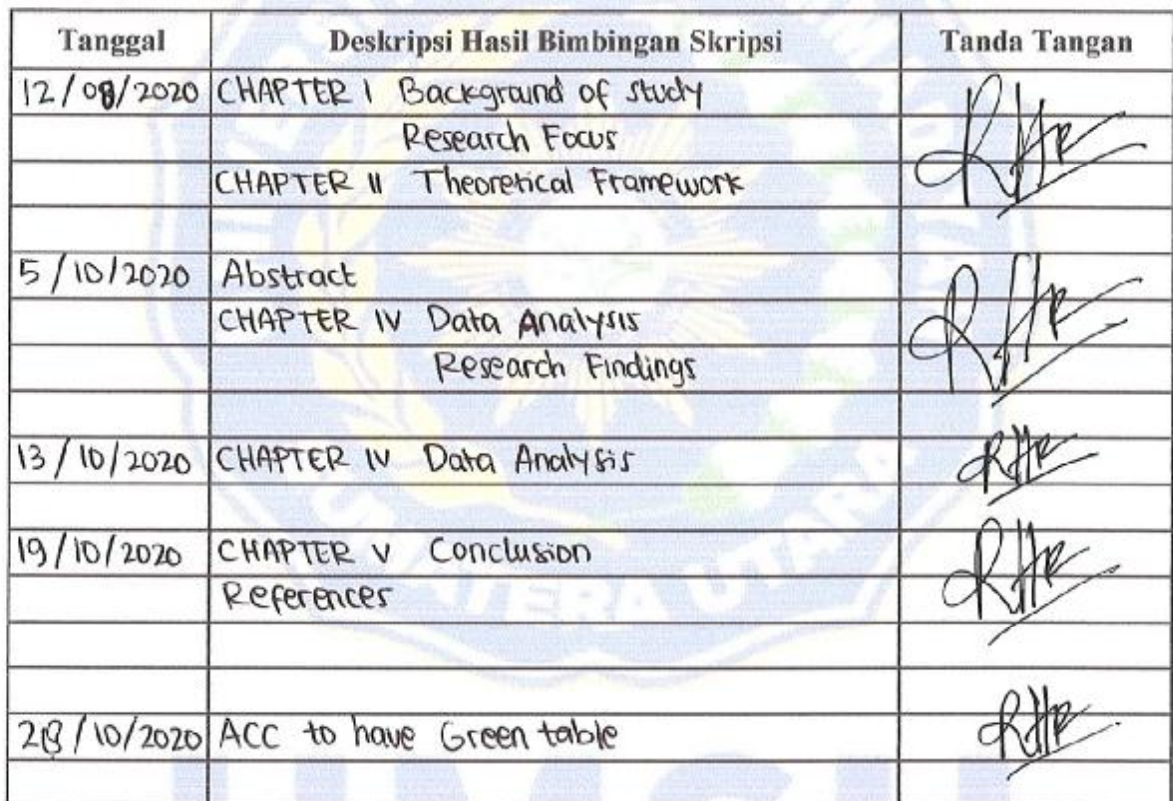 Tanggal Deskripsi Hasil Bimbingan Skripsi Tanda Tangan
12/08/2020 CHAPTER I Background of study
Research Focus
CHAPTER II Theoretical Framework
5/10/2020 Abstract
CHAPTER IV Data Analysis
Research Findings
13/10/2020 CHAPTER IV Data Analysis
19/10/2020 CHAPTER V Conclusion
References
/10/2020 ACC to have Green table
SUMATERA UTARA
UMSU